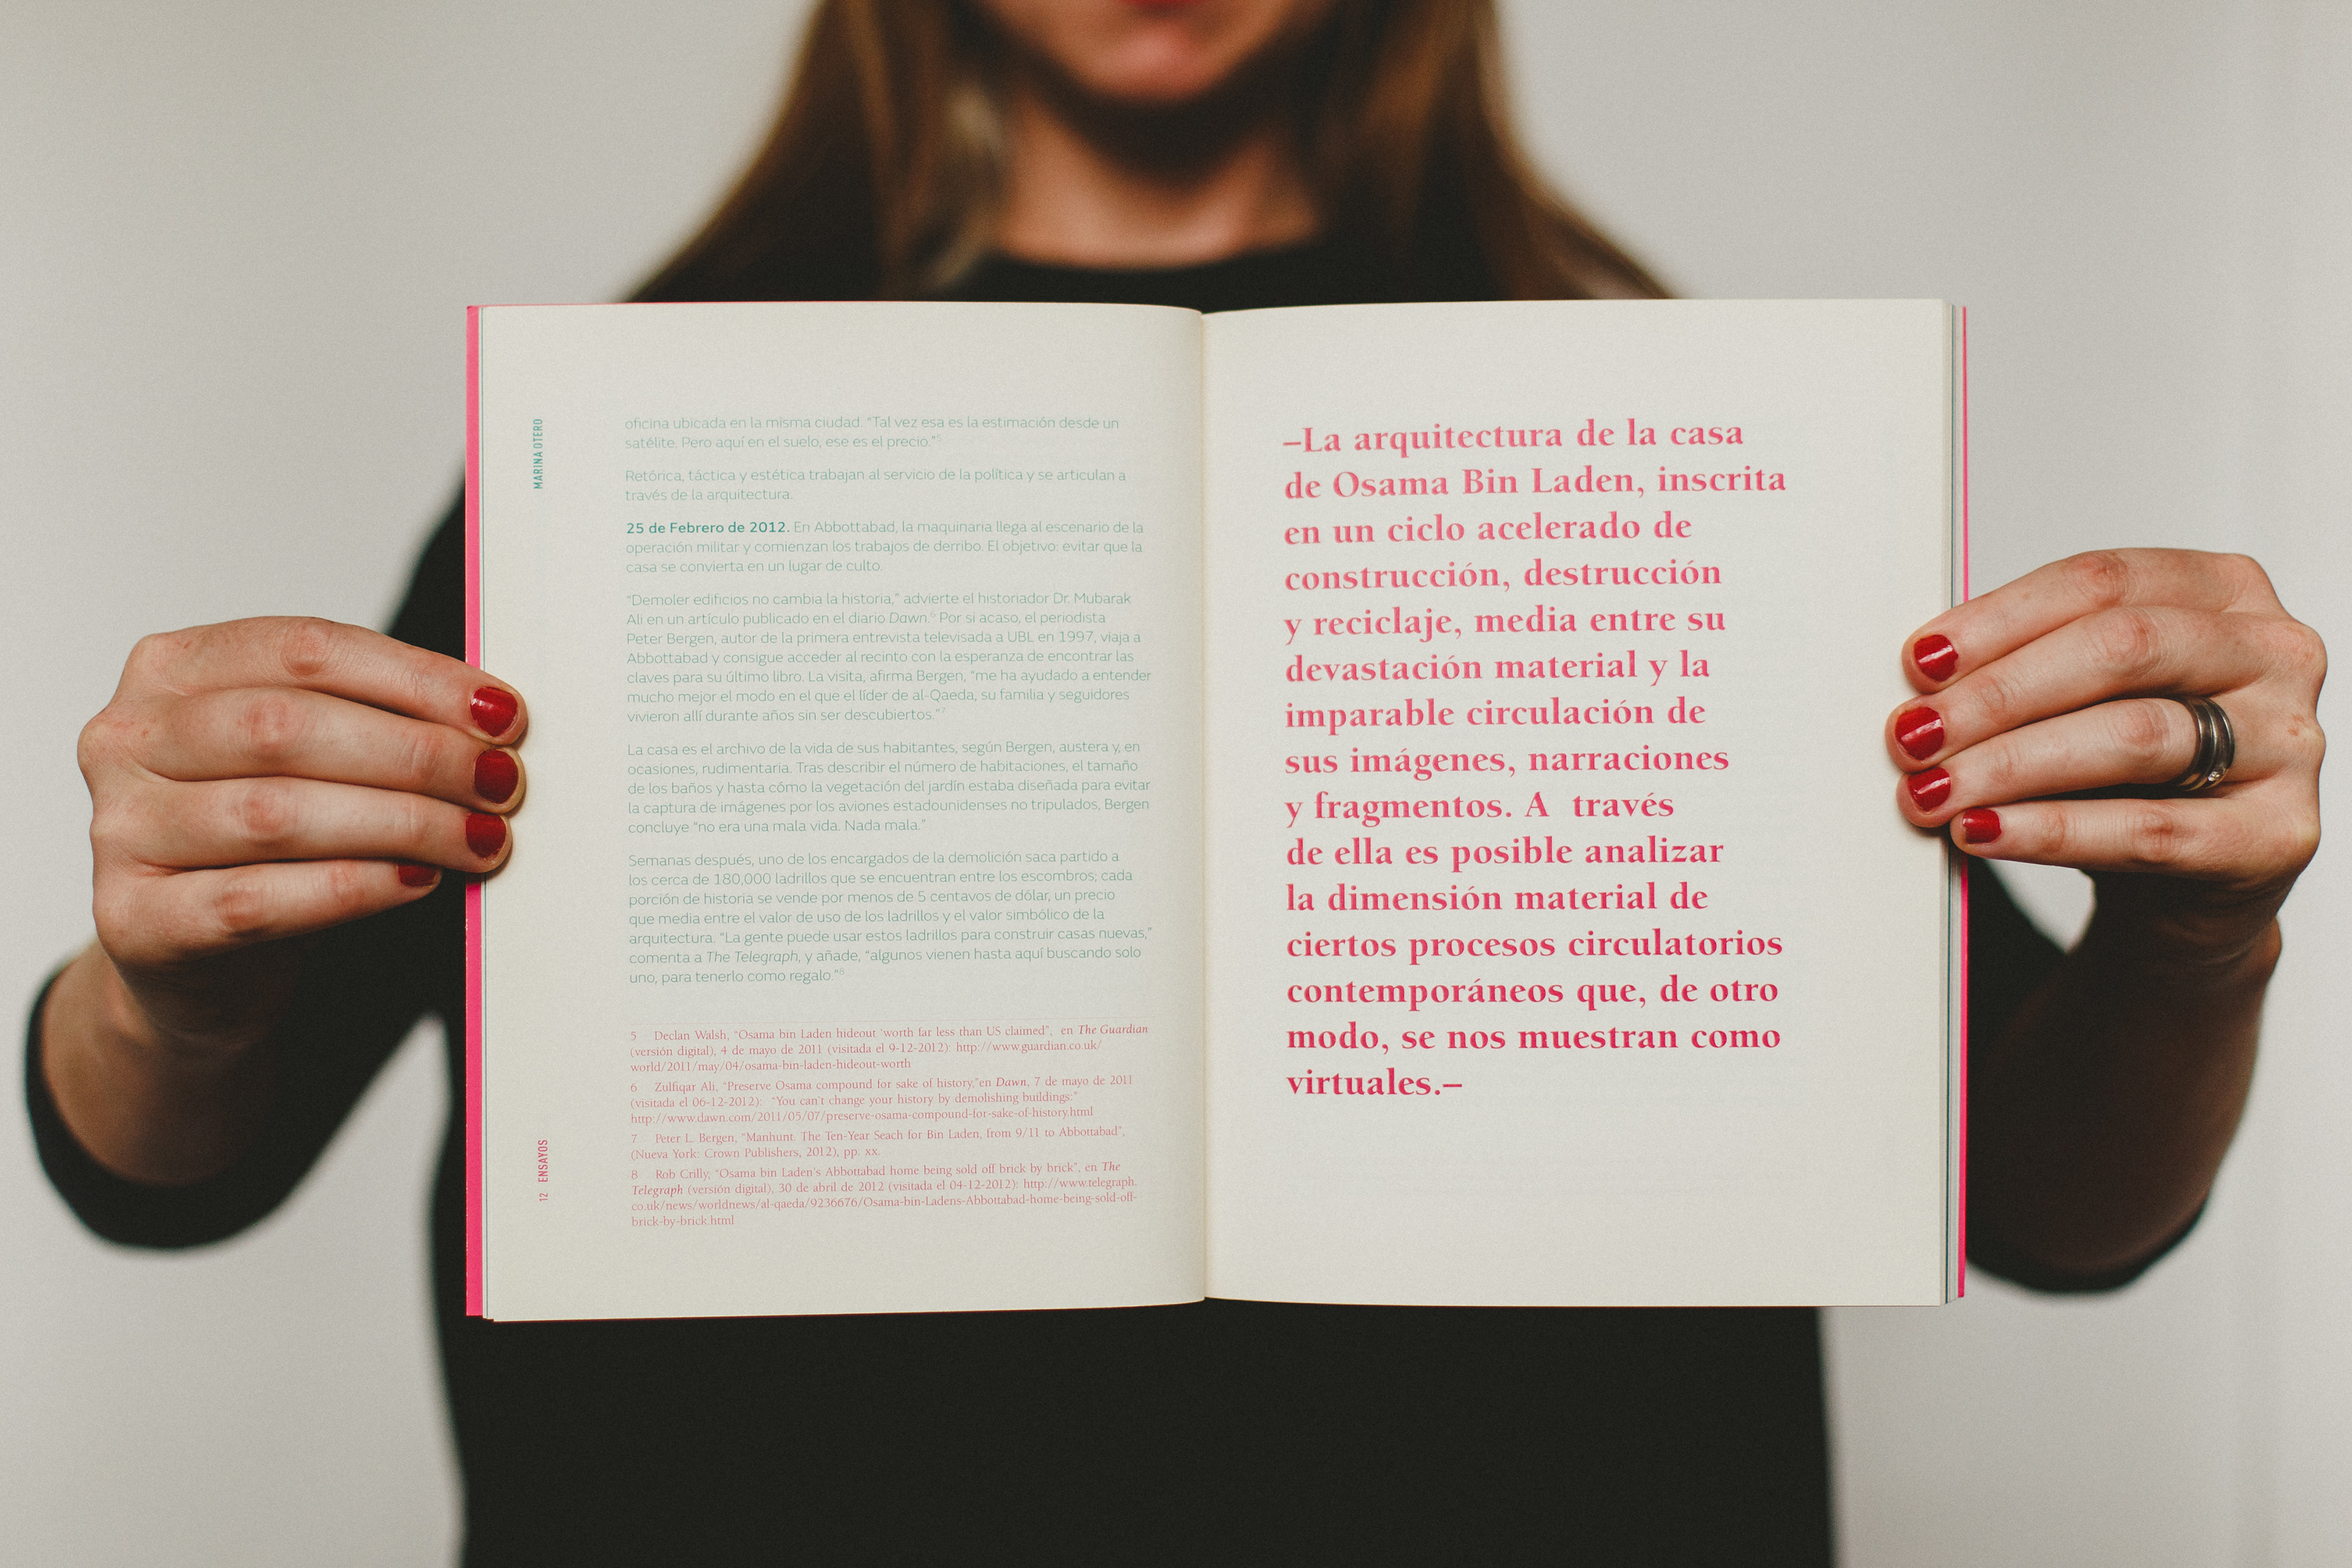 MARINA OTERO
oficina ubicada en la misma ciudad. “Tal vez esa es la estimación desde un
satélite. Pero aquí en el suelo, ese es el precio.”5
Retórica, táctica y estética trabajan al servicio de la política y se articulan a
través de la arquitectura.
25 de Febrero de 2012. En Abbottabad, la maquinaria llega al escenario de la
operación militar y comienzan los trabajos de derribo. El objetivo: evitar que la
casa se convierta en un lugar de culto.
“Demoler edificios no cambia la historia,” advierte el historiador Dr. Mubarak
Ali en un artículo publicado en el diario Dawn.6 Por si acaso, el periodista
Peter Bergen, autor de la primera entrevista televisada a UBL en 1997, viaja a
Abbottabad y consigue acceder al recinto con la esperanza de encontrar las
claves para su último libro. La visita, afirma Bergen, “me ha ayudado a entender
mucho mejor el modo en el que el líder de al-Qaeda, su familia y seguidores
vivieron allí durante años sin ser descubiertos.”7
La casa es el archivo de la vida de sus habitantes, según Bergen, austera y, en
ocasiones, rudimentaria. Tras describir el número de habitaciones, el tamaño
de los baños y hasta cómo la vegetación del jardín estaba diseñada para evitar
la captura de imágenes por los aviones estadounidenses no tripulados, Bergen
concluye “no era una mala vida. Nada mala.”
Semanas después, uno de los encargados de la demolición saca partido a
los cerca de 180,000 ladrillos que se encuentran entre los escombros; cada
porción de historia se vende por menos de 5 centavos de dólar, un precio
que media entre el valor de uso de los ladrillos y el valor simbólico de la
arquitectura. “La gente puede usar estos ladrillos para construir casas nuevas,”
comenta a The Telegraph, y añade, “algunos vienen hasta aquí buscando solo
uno, para tenerlo como regalo.”8
5 Declan Walsh, “Osama bin Laden hideout ‘worth far less than US claimed”, en The Guardian
(versión digital), 4 de mayo de 2011 (visitada el 9-12-2012): http://www.guardian.co.uk/
world/2011/may/04/osama-bin-laden-hideout-worth
6 Zulfiqar Ali, “Preserve Osama compound for sake of history,”en Dawn, 7 de mayo de 2011
(visitada el 06-12-2012): “You can’t change your history by demolishing buildings.”
http://www.dawn.com/2011/05/07/preserve-osama-compound-for-sake-of-history.html
7 Peter L. Bergen, “Manhunt. The Ten-Year Seach for Bin Laden, from 9/11 to Abbottabad”,
(Nueva York: Crown Publishers, 2012), pp. xx.
8 Rob Crilly, “Osama bin Laden’s Abbottabad home being sold off brick by brick”, en The
Telegraph (versión digital), 30 de abril de 2012 (visitada el 04-12-2012): http://www.telegraph.
co.uk/news/worldnews/al-qaeda/9236676/Osama-bin-Ladens-Abbottabad-home-being-sold-off-
brick-by-brick.html
12 ENSAYOS
–La arquitectura de la casa
de Osama Bin Laden, inscrita
en un ciclo acelerado de
construcción, destrucción
y reciclaje, media entre su
devastación material y la
imparable circulación de
sus imágenes, narraciones
y fragmentos. A través
de ella es posible analizar
la dimensión material de
ciertos procesos circulatorios
contemporáneos que, de otro
modo, se nos muestran como
virtuales.–